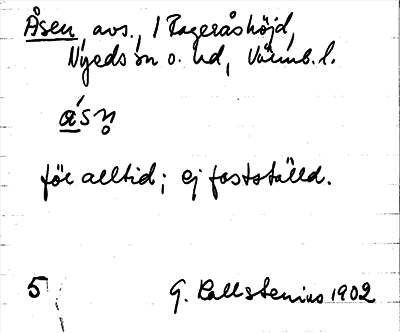 Åsen, avs., 1 Rageråshöjd,
Nyeds sn o. hd, Värmb. l.
ǻsn̥
för alltid; ej fastställd.
5 G. Kallstenius 1902